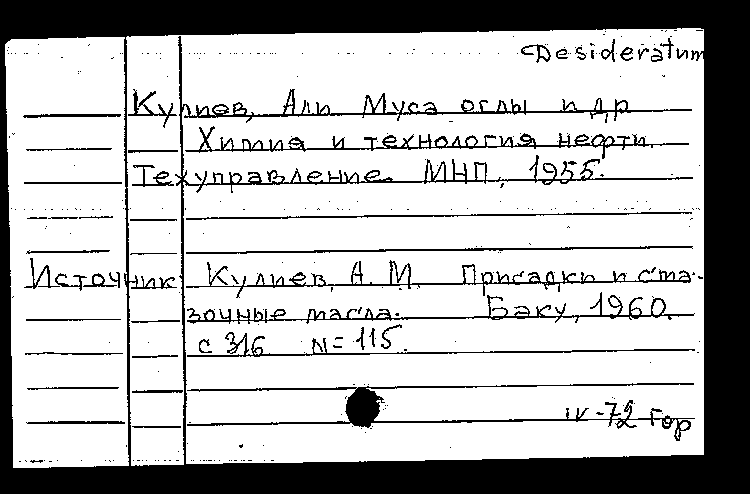 Desideratum
Кулиев, Али Муса оглы и др
Химия и технология нефти.
Техуправление МНП, 1955.
Источник: Кулиев, А. М. Присадки и сма-
зочные масла. Баку, 1960.
с 316 N = 115.
IV-72 Гор